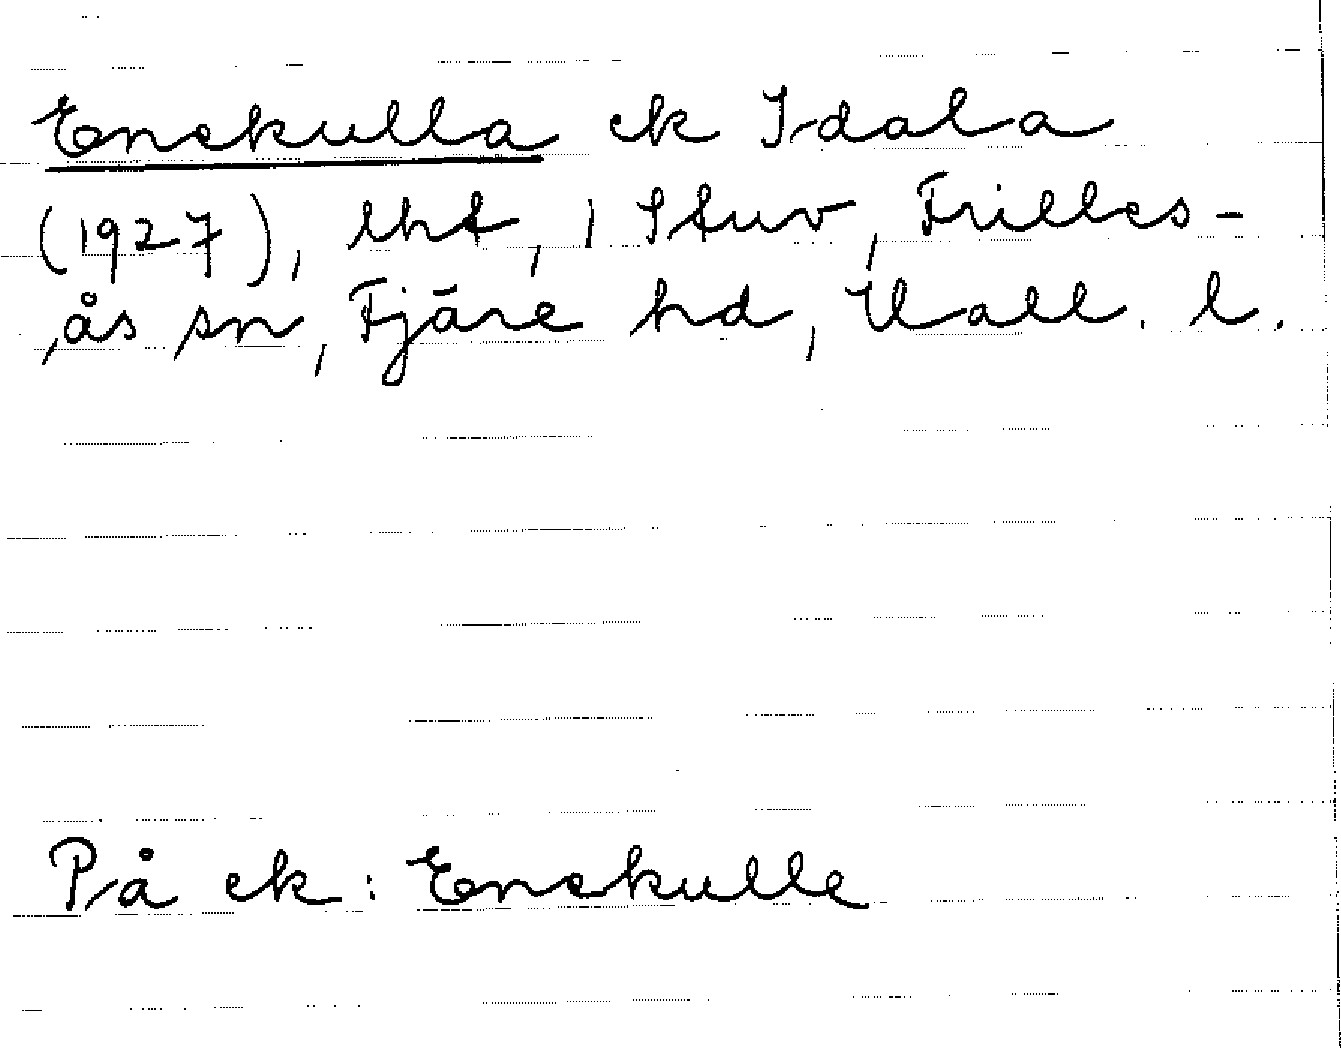 Enekulla ek Idala
(1927), lht, 1 Stuv, Frilles-
ås sn, Fjäre hd, Hall. l.
På ek: Enekulle